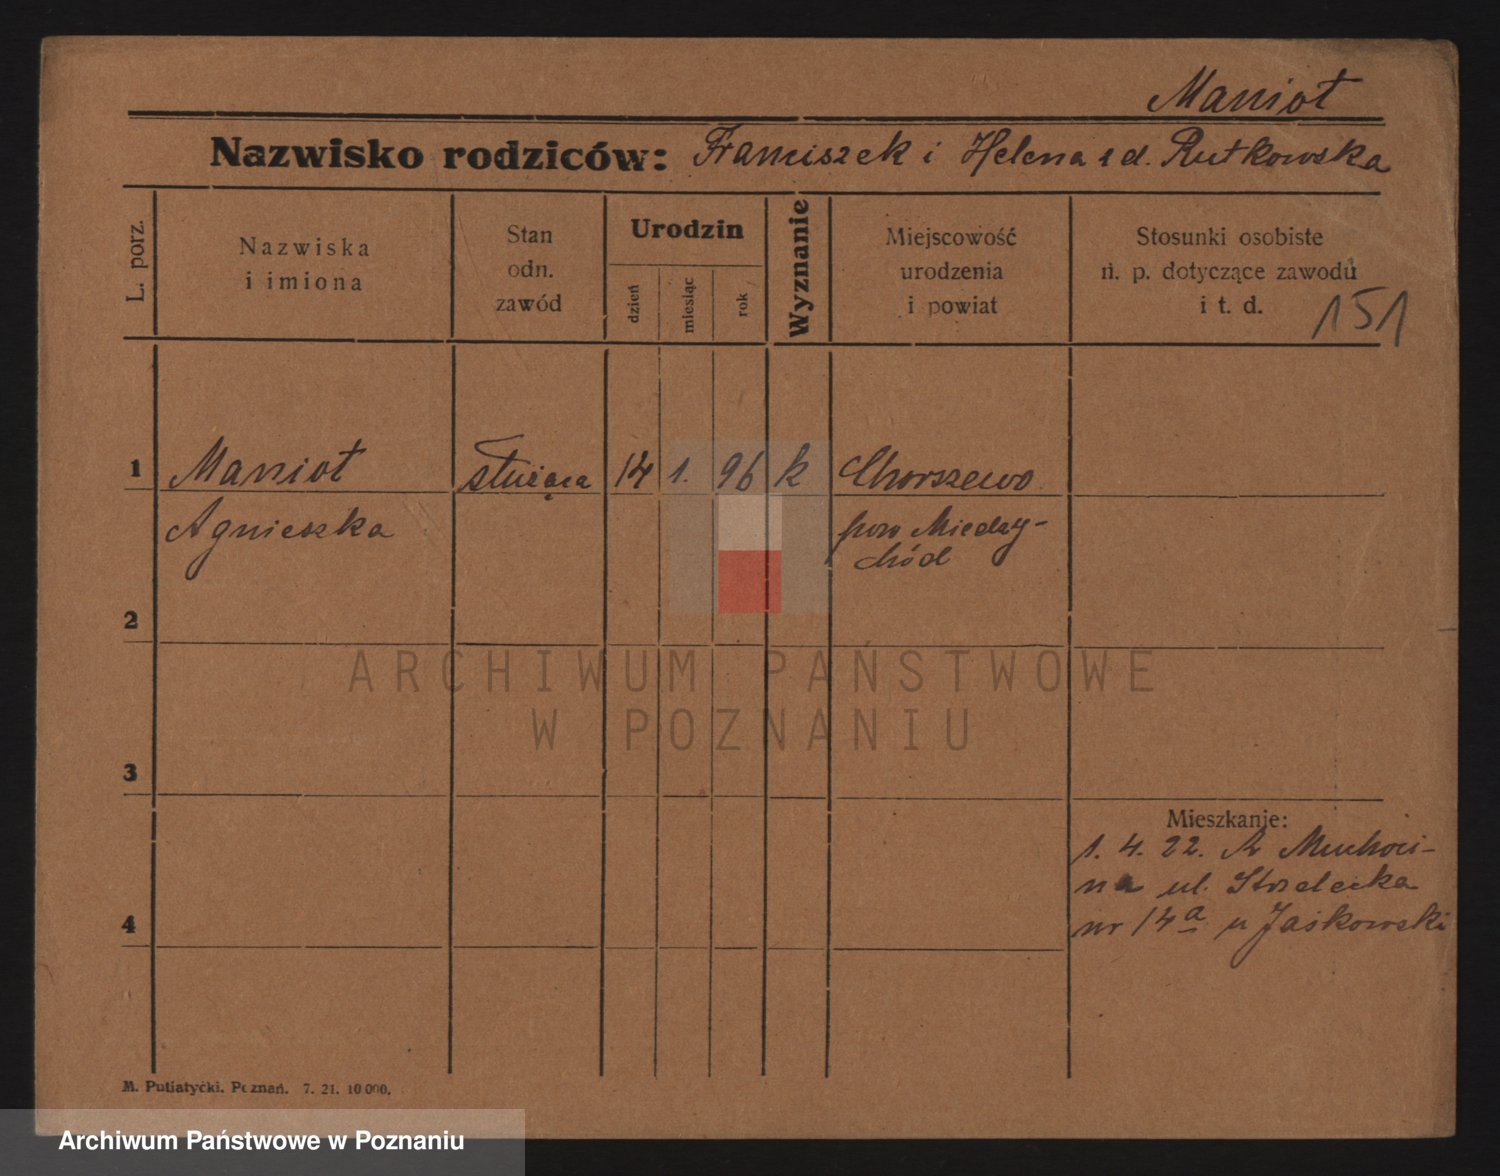 Maniot
Nazwisko rodziców: Franciszek i Helena z d. Rutkowska
L. porz.
Nazwiska
i imiona
Stan
odn.
zawód
Urodzin
dzień
miesiąc
rok
Wyznanie
Miejscowość
urodzenia
i powiat
Stosunki osobiste
n. p. dotyczące zawodu
i t. d.
151
1 Maniot służąca 14 1. 96 k Chorszewo
Agnieszka pow Miedzy-
chód
2
ARCHIWUM PAŃSTWOWE
W POZNANIU
3
Mieszkanie:
1. 4. 22. z Muchoci-
na ul. Strzelecka
4 nr 14a u Jaśkowski
M. Putiatycki, Poznań. 7. 21. 10 000.
Archiwum Państwowe w Poznaniu